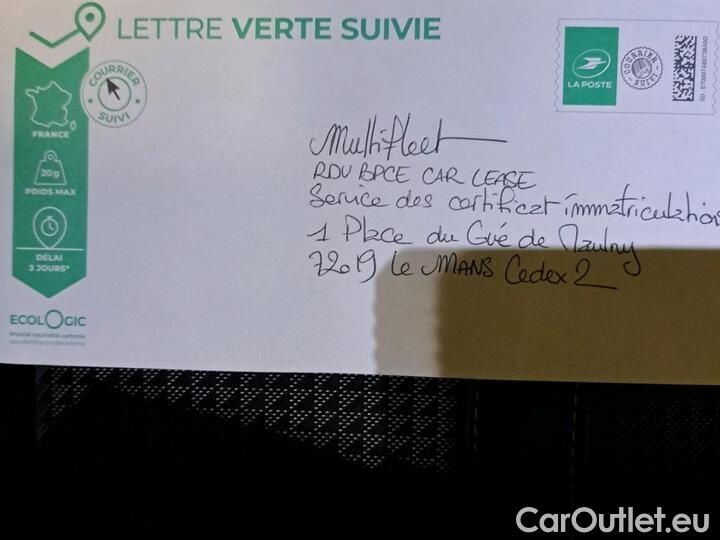 LETTRE VERTE SUIVIE
COURRIER SUIVI
FRANCE
20g
POIDS MAX
DÉLAI
3 JOURS*
ECOLOGIC
Priorité neutralité carbone
LA POSTE
COURRIER SUIVI
Multifleet
RDU BPCE CAR LEASE
Service des certificat immatriculation
1 Place du Gué de Maulny
72019 le MANS Cedex 2
CarOutlet.eu